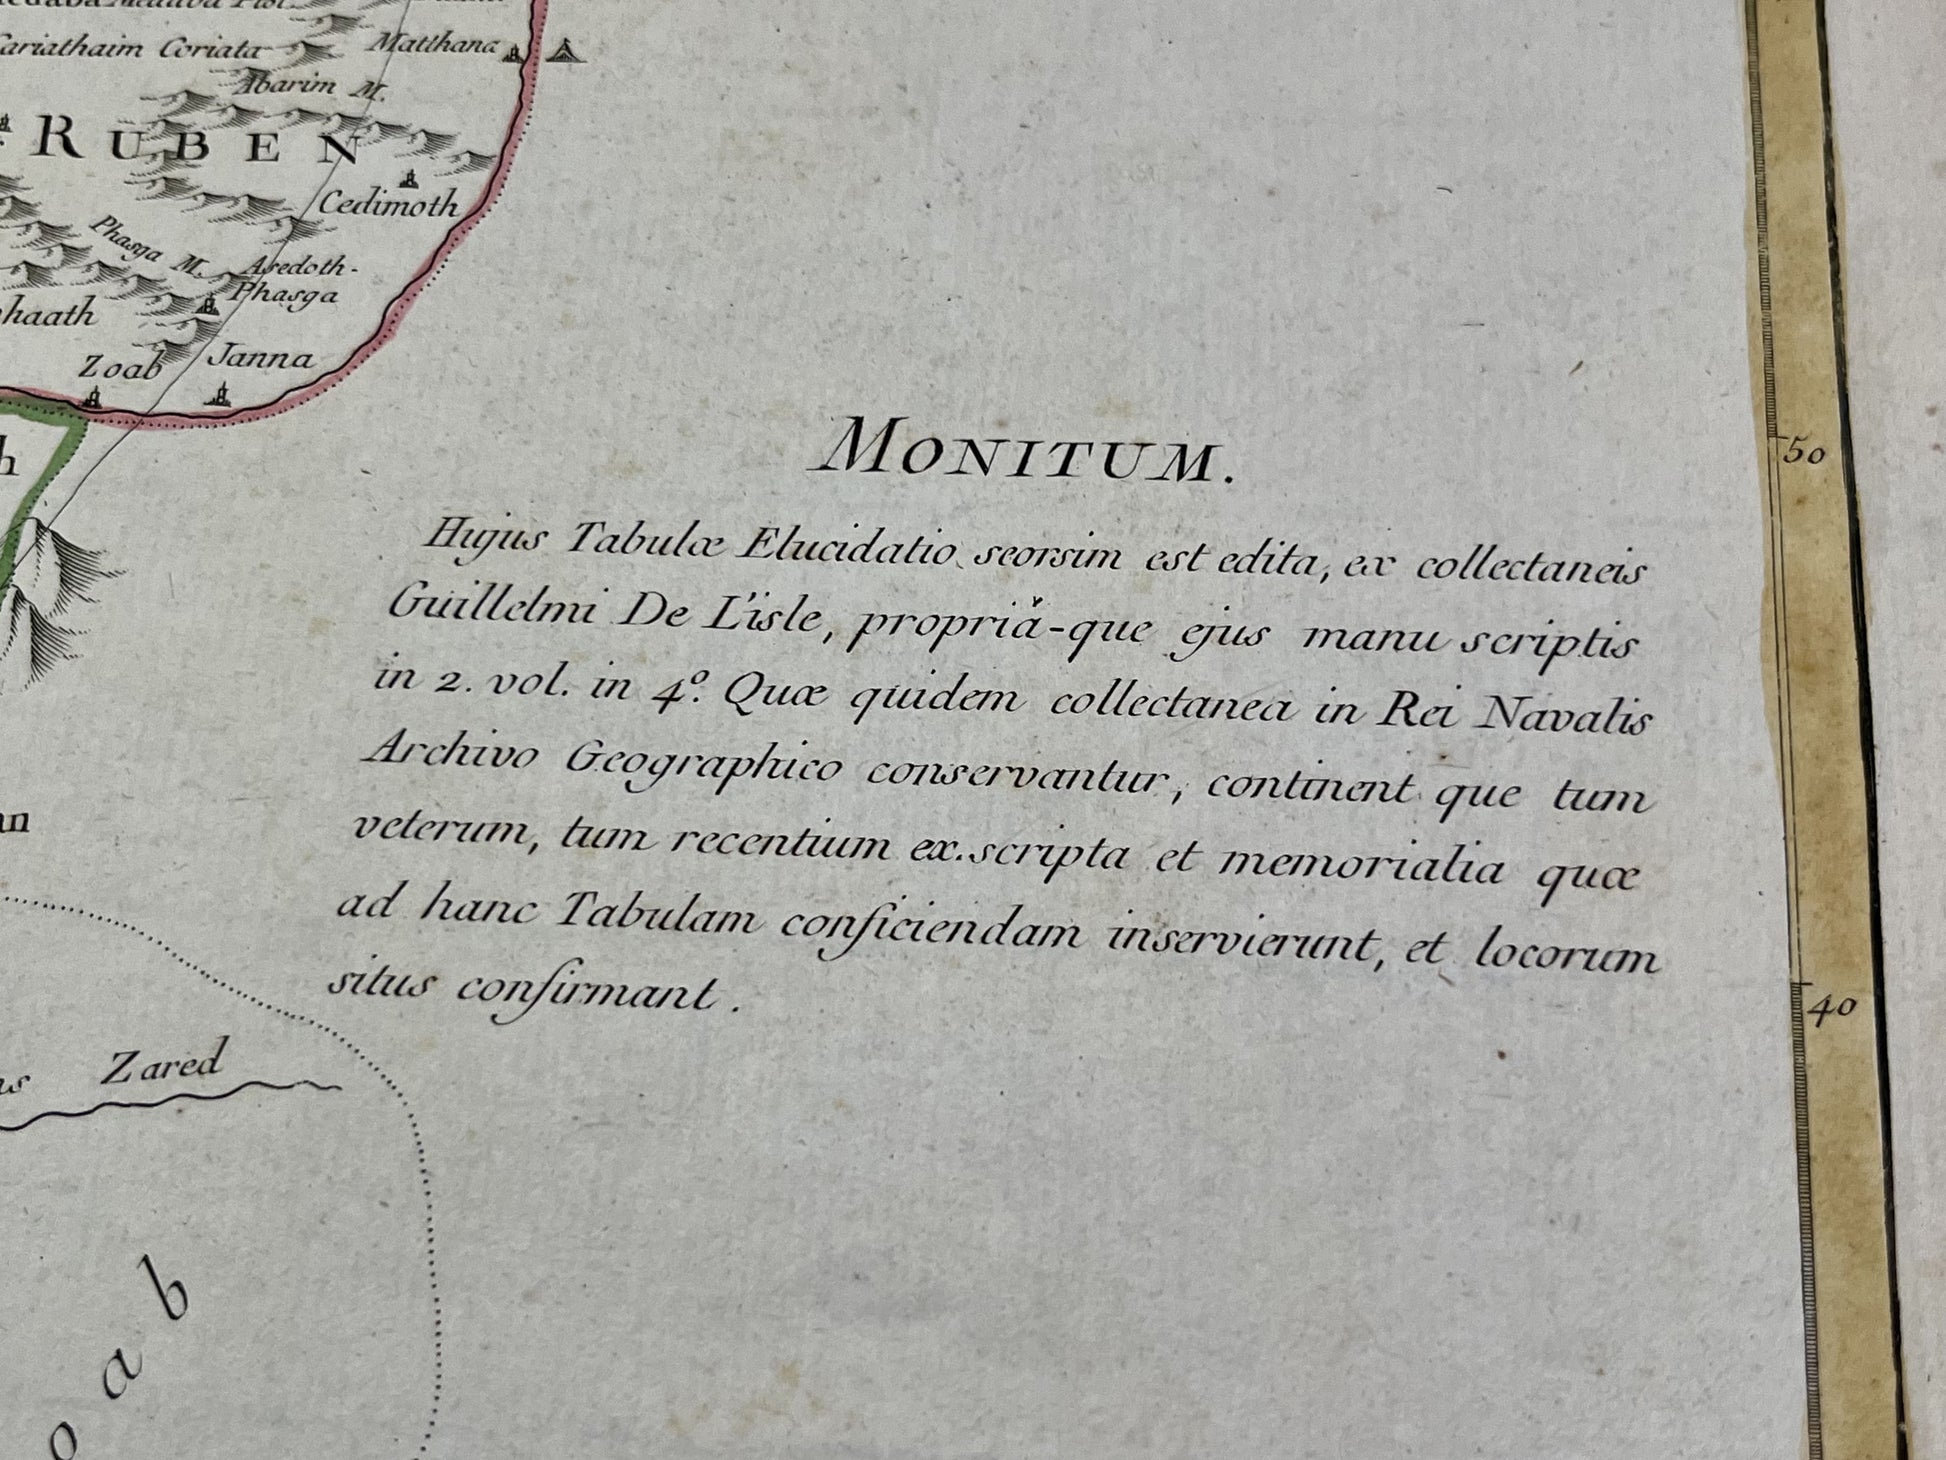 Cariathaim Coriata
Matthana
Abarim M.
RUBEN
Cedimoth
Phasga M.
Asedoth-
Phasga
Zoab
Janna
MONITUM.
Hujus Tabulæ Elucidatio seorsim est edita, ex collectaneis
Guillelmi De L'isle, propriâ-que ejus manu scriptis
in 2. vol. in 4º. Quæ quidem collectanea in Rei Navalis
Archivo Geographico conservantur, continent que tum
veterum, tum recentium ex.scripta et memorialia quæ
ad hanc Tabulam conficiendam inservierunt, et locorum
situs confirmant.
Zared
oab
50
40